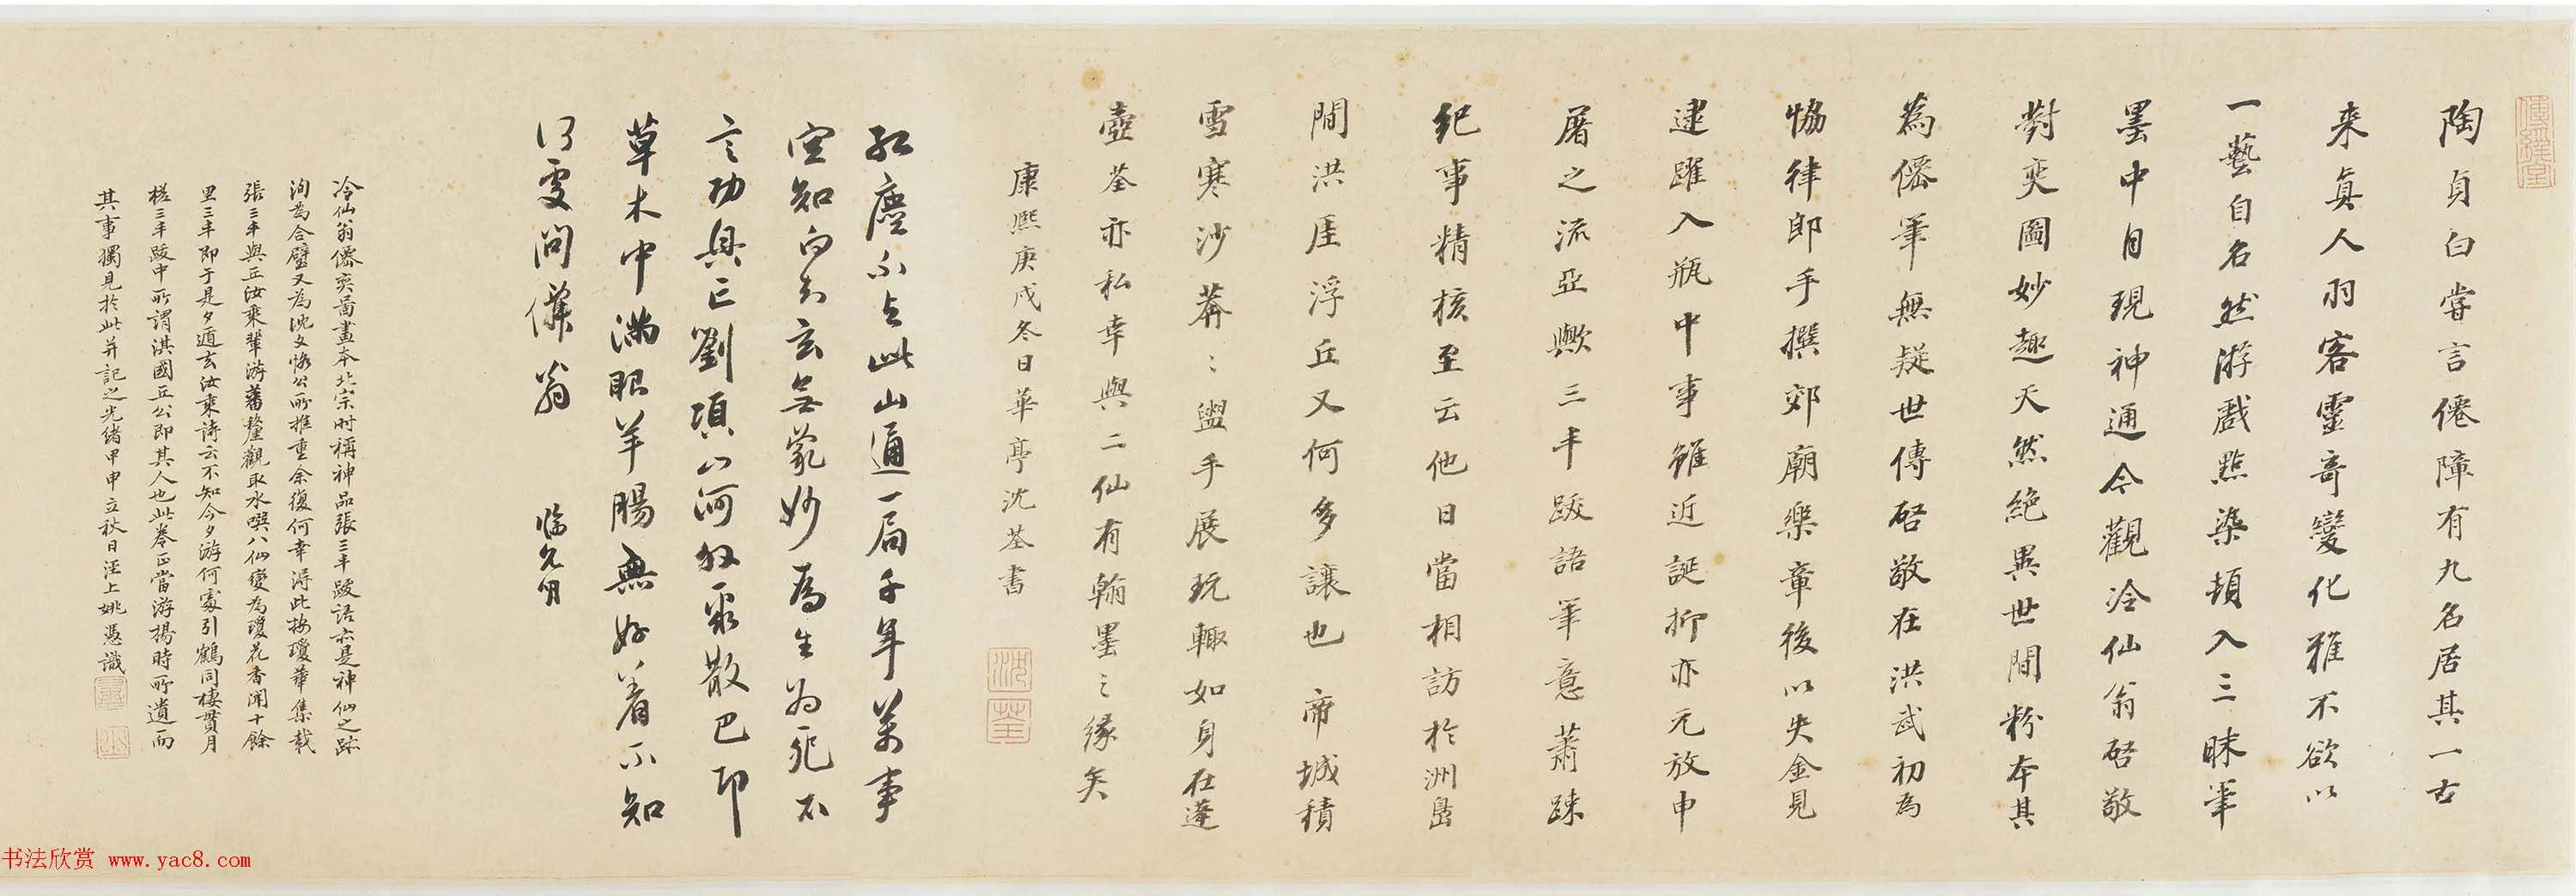 傳經堂
陶貞白嘗言僊障有九名居其一古
来真人羽客靈奇變化雅不欲以
一藝自名然游戲點染頓入三昧筆
墨中自現神通今觀冷仙翁啓敬
對奕圖妙趣天然絶異世間粉本其
為僊筆無疑世傳啓敬在洪武初為
恊律郎手撰郊廟樂章後以失金見
逮躍入瓶中事雖近誕抑亦元放申
屠之流亞歟三丰跋語筆意蕭踈
紀事精核至云他日當相訪於洲島
間洪厓浮丘又何多讓也 帝城積
雪寒沙莽〻盥手展玩輙如身在蓬
壺荃亦私幸與二仙有翰墨之緣矣
康熙庚戌冬日華亭沈荃書
沈荃
紅塵不上此山通一局千年萬事
空知白知玄無蒙妙為生為死不
言功興亡劉項山河
草木中滿眼羊腸無好着不知
何處問僊翁
冷仙翁僊奕啚畫本北宗时稱神品張三丰跋語亦是神仙之跡
洵為合璧又為沈文恪公所推重余復何幸得此按瓊華集載
張三丰與丘汝乘輩游蕃釐觀取水噀八仙變為瓊花香聞十餘
里三丰即于是夕遁去汝乘詩云不知今夕游何處引鶴同棲貫月
槎三丰跋中所謂淇國丘公即其人也此卷正當游揚時所遺而
其事獨見於此并記之光緒甲申立秋日汪上姚憑識
书法欣赏 www.yac8.com